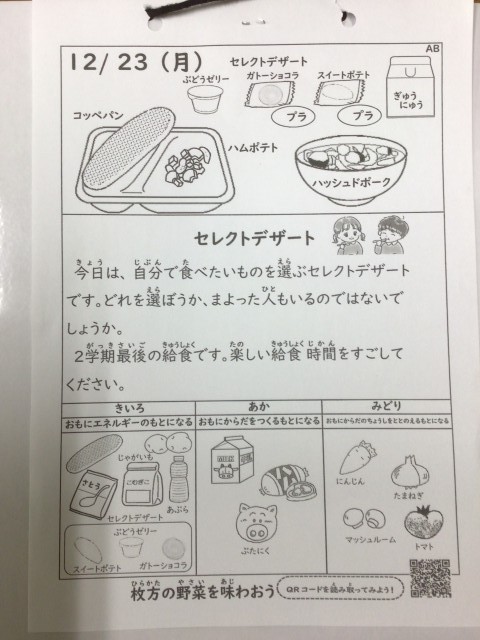 AB
12/23(月)
セレクトデザート
ぶどうゼリー
ガトーショコラ
スイートポテト
プラ
プラ
ぎゅう
にゅう
コッペパン
ハムポテト
ハッシュドポーク
セレクトデザート
きょう じぶん た えら
今日は、自分で食べたいものを選ぶセレクトデザート
えら ひと
です。どれを選ぼうか、まよった人もいるのではないで
しょうか。
がっきさいご きゅうしょく たの きゅうしょく じかん
2学期最後の給食です。楽しい給食時間をすごして
ください。
きいろ
あか
みどり
おもにエネルギーのもとになる
おもにからだをつくるもとになる
おもにからだのちょうしをととのえるもとになる
じゃがいも
さとう
こむぎこ
あぶら
セレクトデザート
ぶどうゼリー
スイートポテト
ガトーショコラ
MILK
ぶたにく
にんじん
たまねぎ
マッシュルーム
トマト
ひらかた やさい あじ
枚方の野菜を味わおう
QRコードを読み取ってみよう!